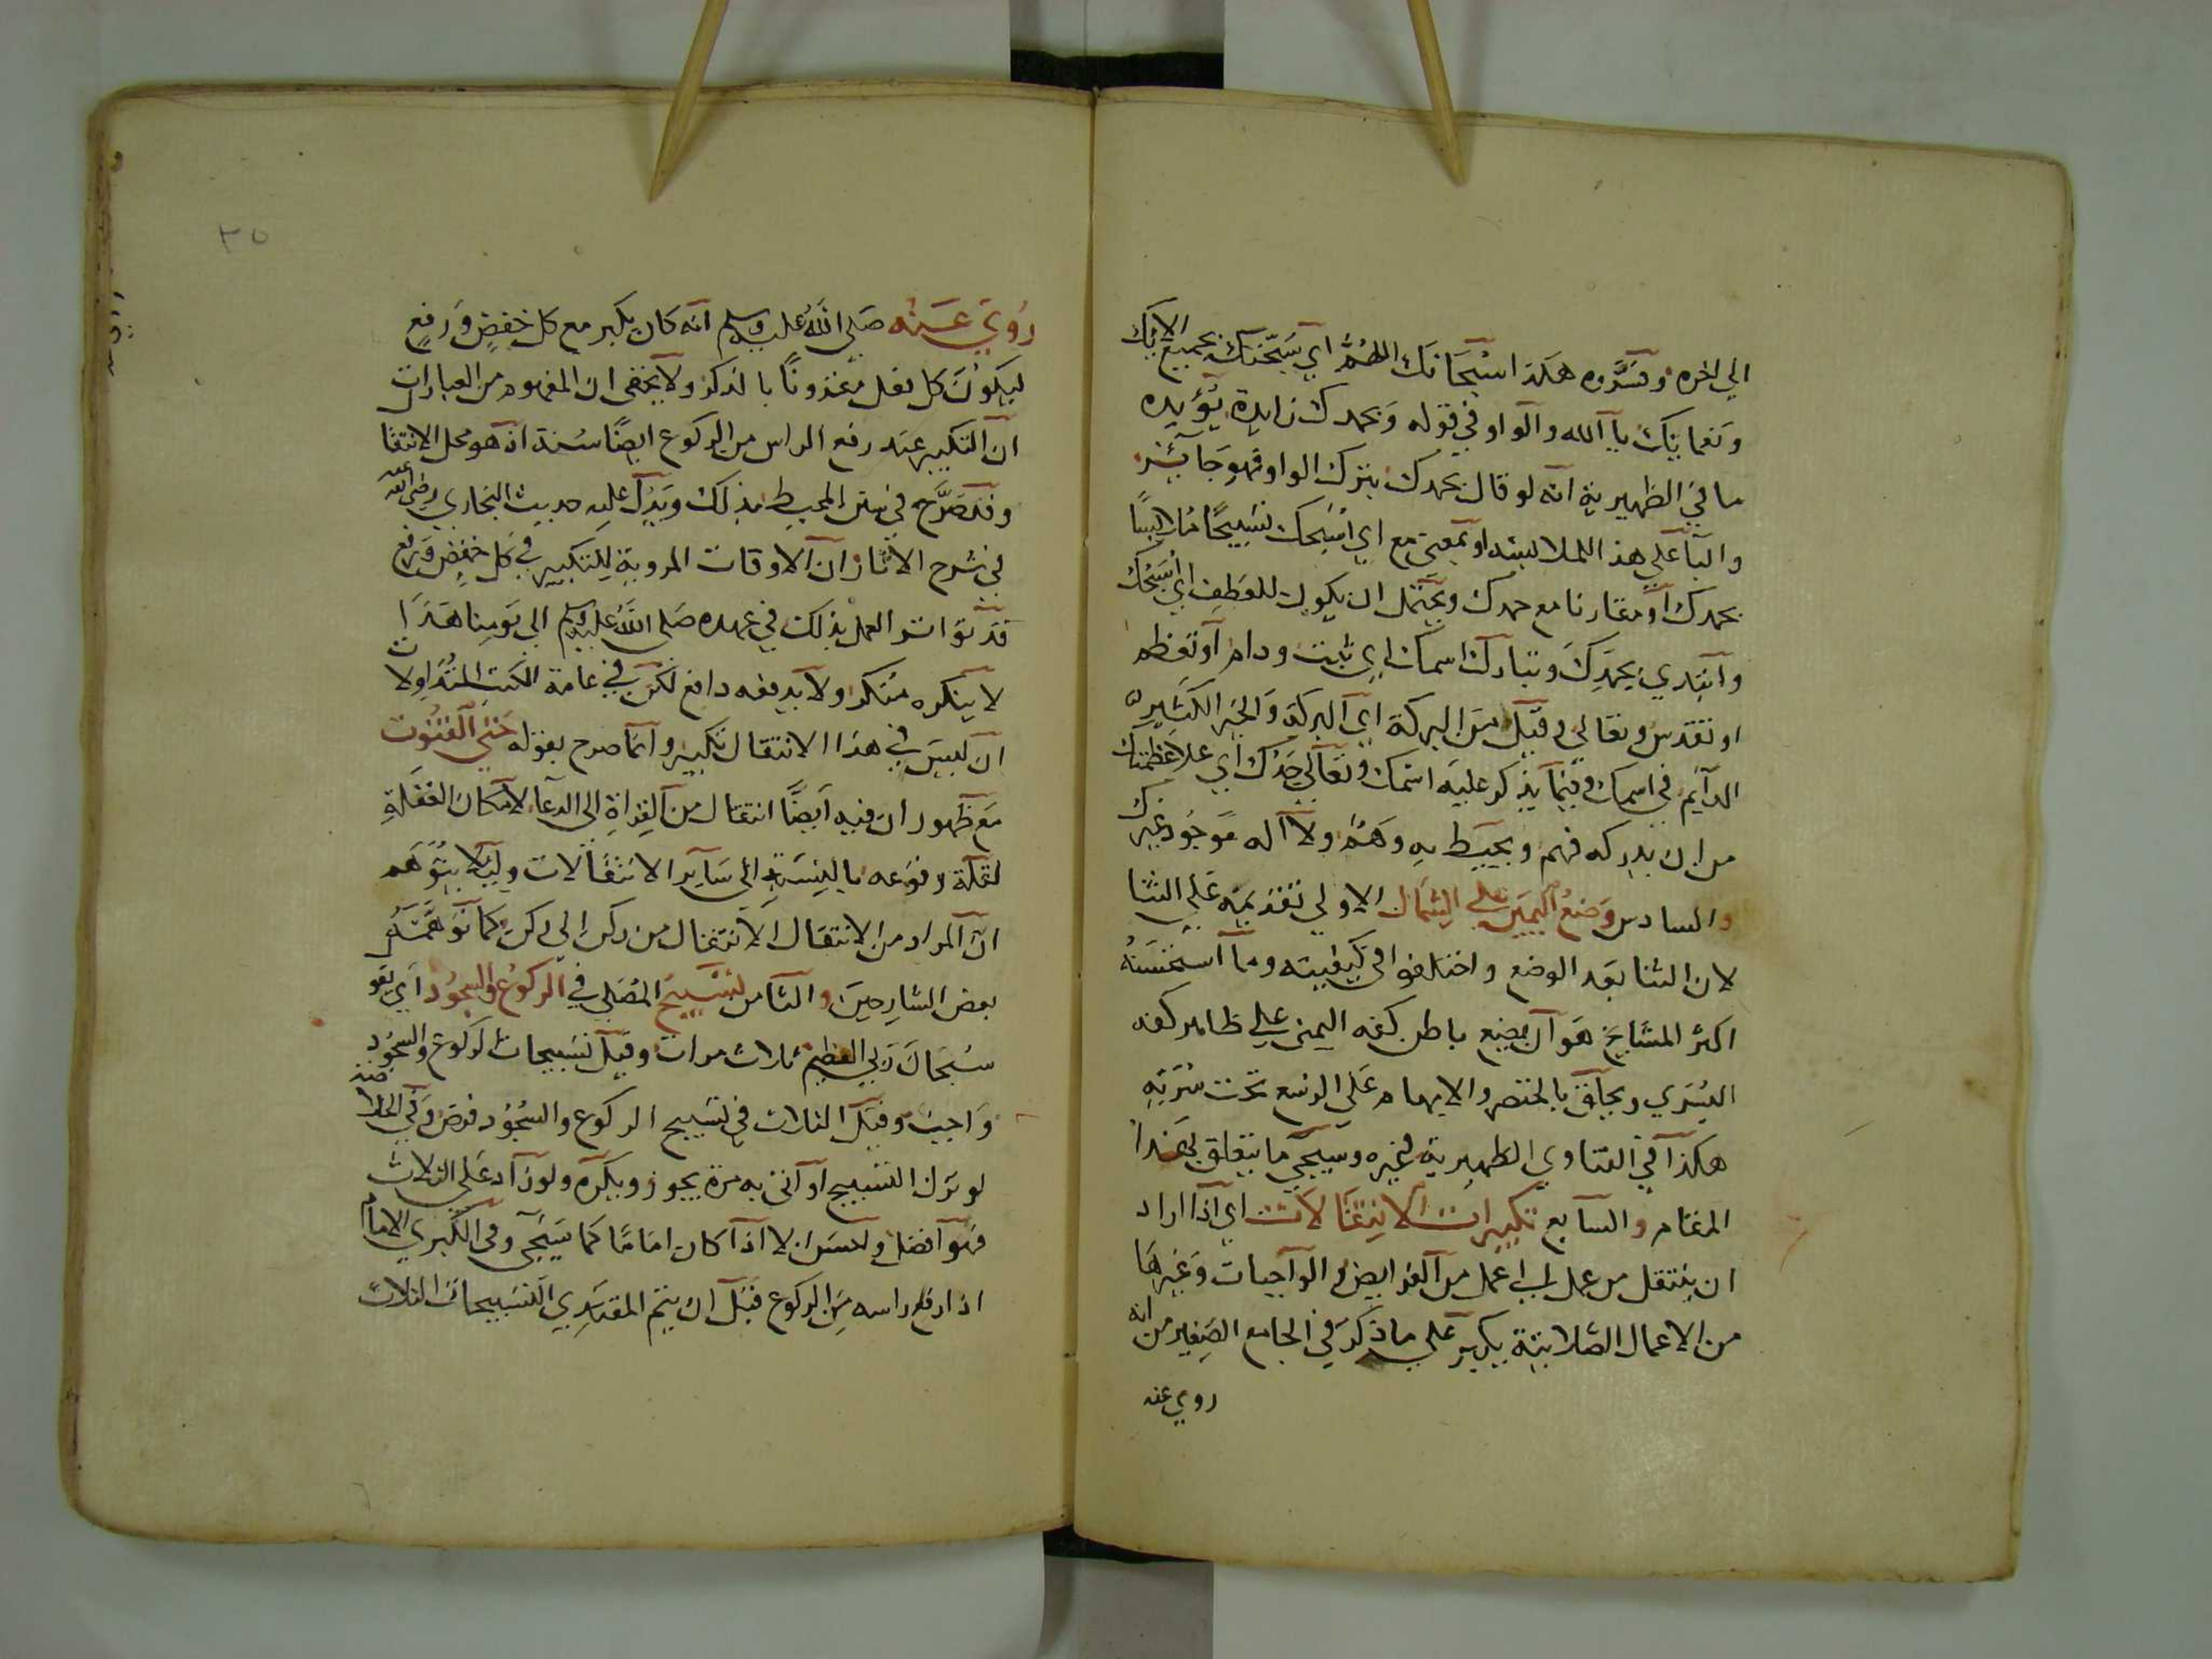 الي اخره وفسروه هكذا سبحانك اللهم اي سبحتك بجميع الايك
ونعمايك يا الله والواو في قوله وبحمدك زايدة يؤيده
ما في الظهيرية انه لو قال بحمدك بترك الواو فهو جايز
والبا علي هذا للملابسة او بمعني مع اي اسبحك تسبيحا ملابسا
بحمدك او مقارنا مع حمدك ويحتمل ان يكون للعطف اي اسبحك
وابتدي بحمدك وتبارك اسمك اي ثبت ودام او تعظم
او تقدس وتعالي وقيل من البركة اي البركة والخير الكثير
الدايم في اسمك وفيما يذكر عليه اسمك وتعالي جدك اي علا عظمتك
من ان يدركه فهم ويحيط به وهم ولا اله موجود غيرك
والسادس وضع اليمين علي الشمال الاولي تقديمه علي الثنا
لان الثنا بعد الوضع واختلفوا في كيفيته وما استحسنه
اكثر المشايخ هو ان يضع باطن كفه اليمني علي ظاهر كفه
اليسري ويحلق بالخنصر والابهام علي الرسغ تحت سرته
هكذا في الفتاوي الظهيرية وغيره وسيجي ما يتعلق بهذا
المقام والسابع تكبيرات الانتقالات اي اذا اراد
ان ينتقل من عمل الي عمل من الفرايض والواجبات وغيرها
من الاعمال الصلاتية يكبر علي ما ذكر في الجامع الصغير من انه
روي عنه
٣٥
روي عنه صلي الله عليه وسلم انه كان يكبر مع كل خفض ورفع
ليكون كل فعل مقرونا بالذكر ولا يخفي ان المفهوم من العبارات
ان التكبير عند رفع الراس من الركوع ايضا سنة اذ هو محل الانتقا
وقد صرح في متن المحيط بذلك ويدل عليه حديث البخاري رضي الله عنه
في شرح الاثار ان الاوقات المروية للتكبير في كل خفض ورفع
قد تواتر العمل بذلك في عهده صلي الله عليه وسلم الي يومنا هذا
لا ينكره منكر ولا يدفعه دافع لكن في عامة الكتب المتداولات
ان ليس في هذا الانتقال تكبير وانما صرح بقوله حتي القنوت
مع ظهور ان فيه ايضا انتقال من القراة الي الدعا لامكان الغفلة
لقلة وقوعه بالنسبة الي ساير الانتقالات وليلا يتوهم
ان المراد من الانتقال الانتقال من ركن الي ركن كما توهم
بعض الشارحين والثامن تسبيح المصلي في الركوع والسجود اي يقو
سبحان ربي العظيم ثلاث مرات وقيل تسبيحات الركوع والسجود
واجبة وقيل الثلاث في تسبيح الركوع والسجود فرض وفي الخلاصة
لو ترك التسبيح او اتي به مرة يجوز ويكره ولو زاد علي الثلاث
فهو افضل ولكن لا اذا كان اماما كما سيجي وفي الكبري الامام
اذا رفع راسه من الركوع قبل ان يتم المقتدي التسبيحات الثلاث